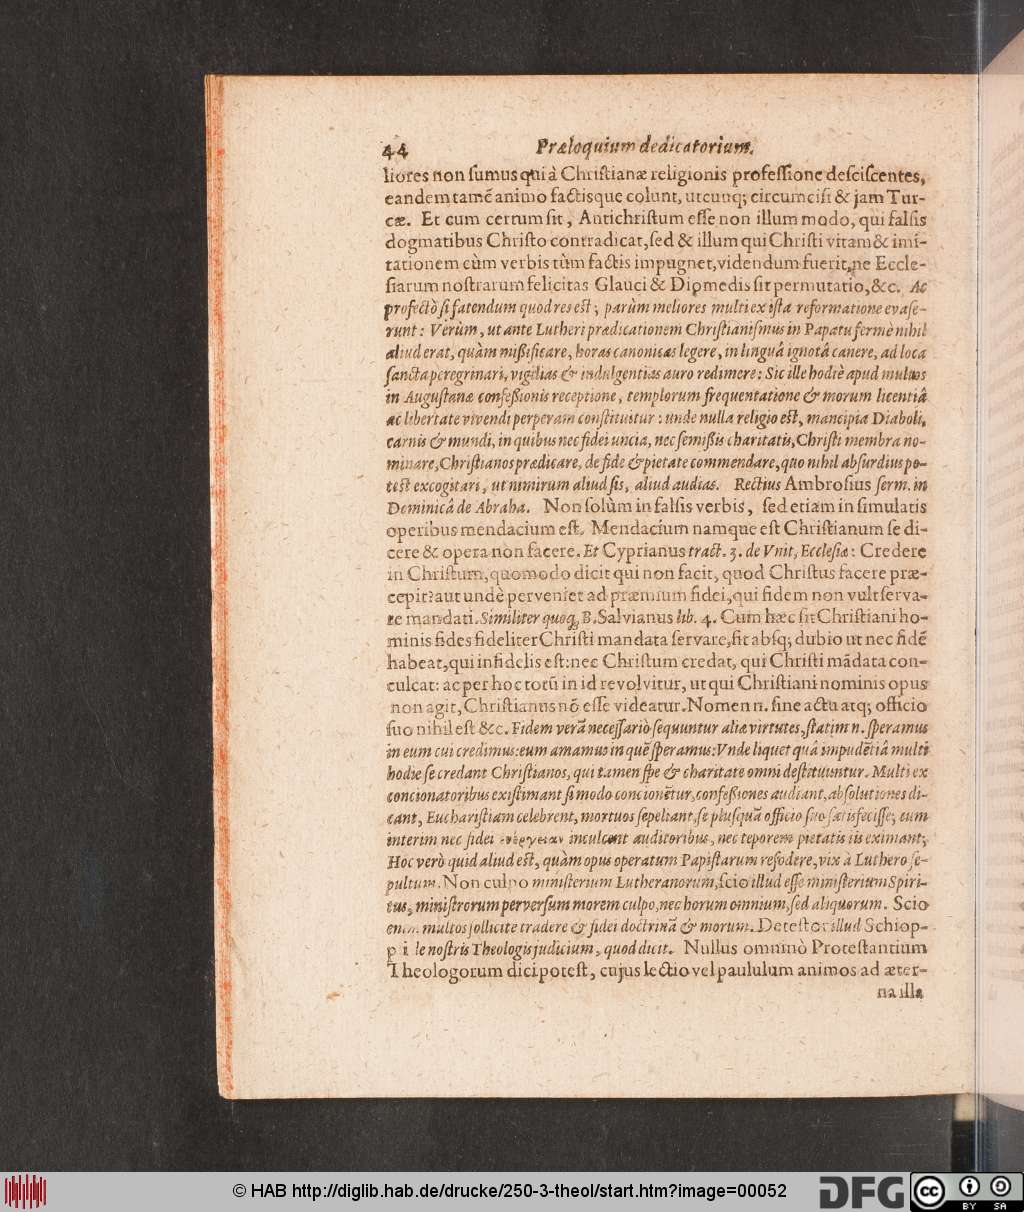 44 Præloquium dedicatorium.
liores non ſumus qui à Chriſtianæ religionis profeſſione deſciſcentes,
eandem tamē animo factisque colunt, utcunq; circumciſi & jam Tur-
cæ. Et cum certum ſit, Antichriſtum eſſe non illum modo, qui falſis
dogmatibus Chriſto contradicat, ſed & illum qui Chriſti vitam & imi-
tationem cùm verbis tùm factis impugnet, videndum fuerit, ne Eccle-
ſiarum noſtrarum felicitas Glauci & Diomedis ſit permutatio, &c. Ac
profectò ſi fatendum quod res eſt; parùm meliores multi ex iſta reformatione evaſe-
runt: Verùm, ut ante Lutheri prædicationem Chriſtianiſmus in Papatu fermè nihil
aliud erat, quàm miſſificare, horas canonicas legere, in linguâ ignotâ canere, ad loca
ſancta peregrinari, vigilias & indulgentias auro redimere: Sic ille hodiè apud multos
in Auguſtanæ confeſſionis receptione, templorum frequentatione & morum licentiâ
ac libertate vivendi perperam conſtituitur: unde nulla religio eſt, mancipia Diaboli,
carnis & mundi, in quibus nec fidei uncia, nec ſemiſſis charitatis, Chriſti membra no-
minare, Chriſtianos prædicare, de fide & pietate commendare, quo nihil abſurdius po-
teſt excogitari, ut nimirum aliud ſis, aliud audias. Rectius Ambroſius ſerm. in
Dominicâ de Abraha. Non ſolùm in falſis verbis, ſed etiam in ſimulatis
operibus mendacium eſt. Mendacium namque eſt Chriſtianum ſe di-
cere & opera non facere. Et Cyprianus tract. 3. de Vnit. Eccleſiæ: Credere
in Chriſtum, quomodo dicit qui non facit, quod Chriſtus facere præ-
cepit? aut undè perveniet ad præmium fidei, qui fidem non vult ſerva-
re mandati. Similiter quoq; B. Salvianus lib. 4. Cum hæc ſit Chriſtiani ho-
minis fides fideliter Chriſti mandata ſervare, fit abſq; dubio ut nec fidē
habeat, qui infidelis eſt: nec Chriſtum credat, qui Chriſti mādata con-
culcat: ac per hoc totū in id revolvitur, ut qui Chriſtiani nominis opus
non agit, Chriſtianus nō eſſe videatur. Nomen n. ſine actu atq; officio
ſuo nihil eſt &c. Fidem verā neceſſariò ſequuntur aliæ virtutes, ſtatim n. ſperamus
in eum cui credimus: eum amamus in quē ſperamus: Vnde liquet quâ impudētiâ multi
hodie ſe credant Chriſtianos, qui tamen ſpe & charitate omni deſtituuntur. Multi ex
concionatoribus exiſtimant ſi modo concionētur, confeſſiones audiant, abſolutiones di-
cant, Euchariſtiam celebrent, mortuos ſepeliant, ſe pluſquā officio ſuo ſatisfeciſſe; cum
interim nec fidei ἐνέργειαν inculcent auditoribus, nec teporem pietatis iis eximant;
Hoc verò quid aliud eſt, quàm opus operatum Papiſtarum refodere, vix à Luthero ſe-
pultum. Non culpo miniſterium Lutheranorum, ſcio illud eſſe miniſterium Spiri-
tus, miniſtrorum perverſum morem culpo, nec horum omnium, ſed aliquorum. Scio
enim multos ſollicite tradere & fidei doctrinā & morum. Deteſtor illud Schiop-
pii de noſtris Theologis judicium, quod dicit. Nullus omninò Proteſtantium
Theologorum dici poteſt, cujus lectio vel paululum animos ad æter-
na illa
© HAB http://diglib.hab.de/drucke/250-3-theol/start.htm?image=00052
DFG
cc BY SA